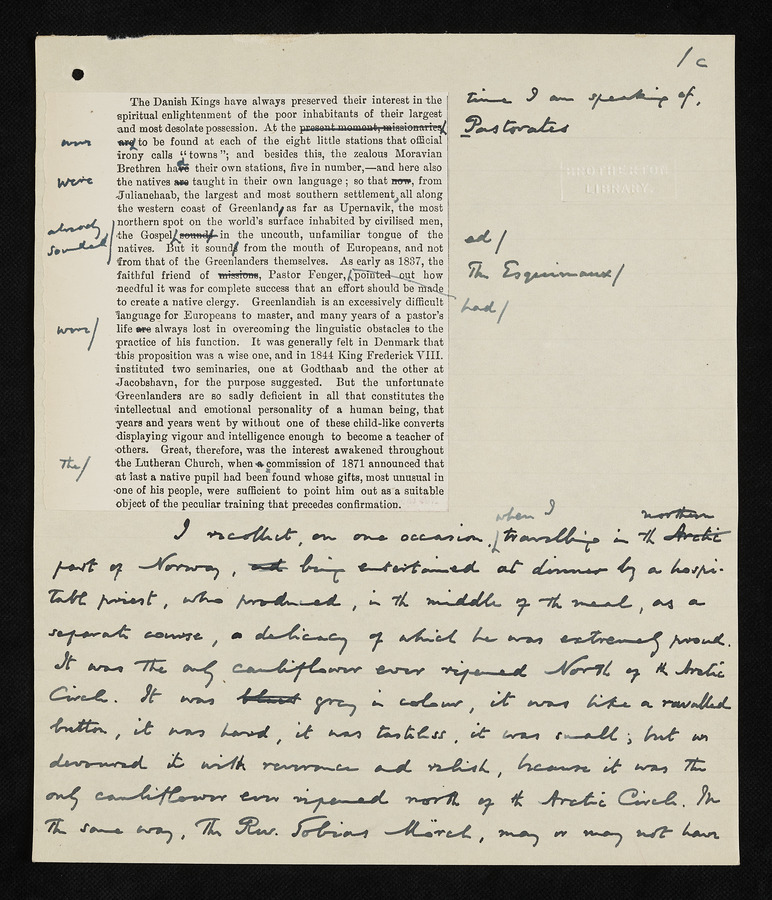 / c
The Danish Kings have always preserved their interest in the
spiritual enlightenment of the poor inhabitants of their largest
and most desolate possession. At the present moment, missionaries
are to be found at each of the eight little stations that official
irony calls "towns"; and besides this, the zealous Moravian
Brethren have their own stations, five in number,—and here also
the natives are taught in their own language; so that now, from
Julianehaab, the largest and most southern settlement, all along
the western coast of Greenland, as far as Upernavik, the most
northern spot on the world's surface inhabited by civilised men,
the Gospel sounds in the uncouth, unfamiliar tongue of the
natives. But it sounds from the mouth of Europeans, and not
from that of the Greenlanders themselves. As early as 1837, the
faithful friend of missions, Pastor Fenger, pointed out how
needful it was for complete success that an effort should be made
to create a native clergy. Greenlandish is an excessively difficult
language for Europeans to master, and many years of a pastor's
life are always lost in overcoming the linguistic obstacles to the
practice of his function. It was generally felt in Denmark that
this proposition was a wise one, and in 1844 King Frederick VIII.
instituted two seminaries, one at Godthaab and the other at
Jacobshavn, for the purpose suggested. But the unfortunate
Greenlanders are so sadly deficient in all that constitutes the
intellectual and emotional personality of a human being, that
years and years went by without one of these child-like converts
displaying vigour and intelligence enough to become a teacher of
others. Great, therefore, was the interest awakened throughout
the Lutheran Church, when a commission of 1871 announced that
at last a native pupil had been found whose gifts, most unusual in
one of his people, were sufficient to point him out as a suitable
object of the peculiar training that precedes confirmation.
were
were
already
sounded
were/
the/
d
time I am speaking of,
Pastorates
BROTHERTON
LIBRARY.
ed/
The Esquimaux/
had/
when I northern
I recollect, on one occasion, travelling in the Arctic
part of Norway, and being entertained at dinner by a hospi-
table priest, who produced, in the middle of the meal, as a
separate course, a delicacy of which he was extremely proud.
It was the only cauliflower ever ripened North of the Arctic
Circle. It was black grey in colour, it was like a ravalled
button, it was hard, it was tasteless, it was small; but we
devoured it with reverence and relish, because it was the
only cauliflower ever ripened north of the Arctic Circle. In
the same way, the Rev. Tobias Mörch, may or may not have